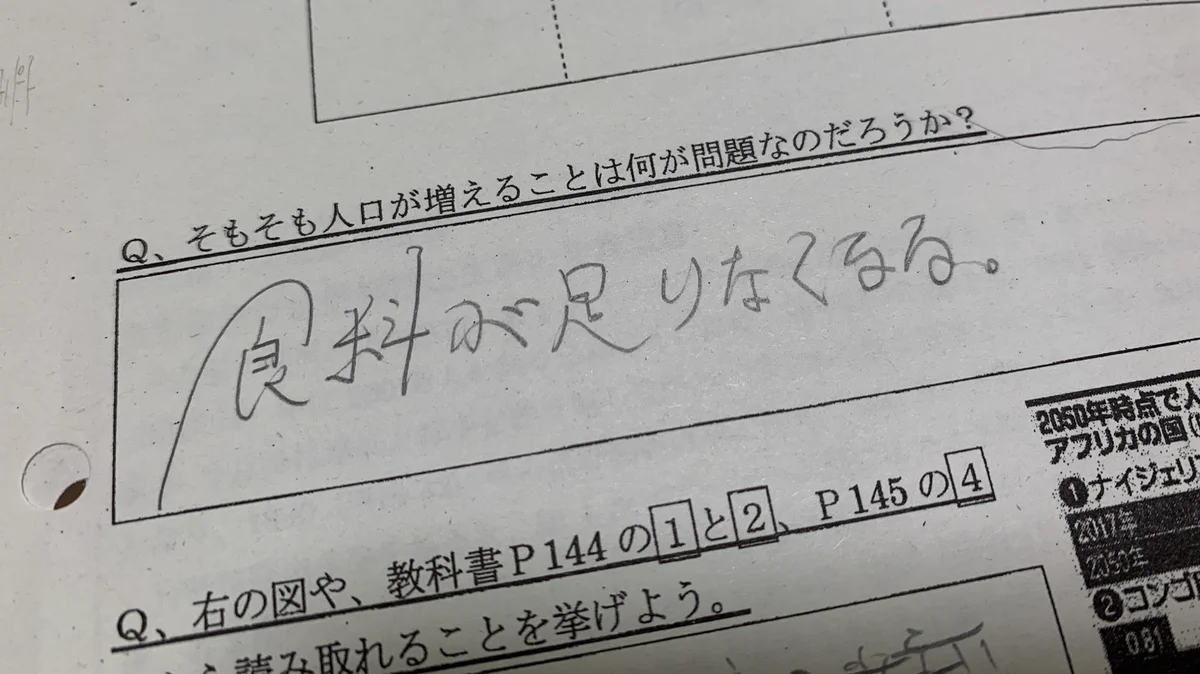 Q、そもそも人口が増えることは何が問題なのだろうか?
食料が足りなくなる。
2050年時点で人
アフリカの国(
❶ナイジェリ
2017年
2050年
Q、右の図や、教科書P144の1と2、P145の4
ら読み取れることを挙げよう。
❷コンゴ
0.81